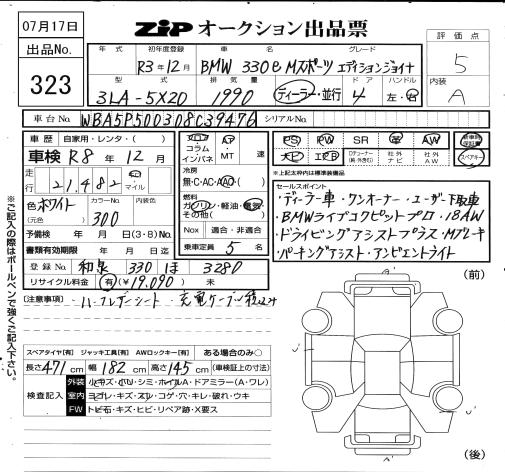 07月17日
ZIP オークション出品票
出品No.
323
年式 初年度登録 車名 グレード
R3年12月 BMW 330e Mスポーツ エディションジョイナ
型式 排気量 ドア ハンドル
3LA-5X20 1990 ディーラー・並行 4 左・右
評価点
5
内装
A
車台No. WBA5P500308C39476 シリアルNo.
車歴 自家用・レンタ・( )
車検 R8年12月
走行 21,482 マイル
色 ホワイト カラーNo. 300 内装色
(元色)
予備検 年 月 日(3・8)No.
書類有効期限 年 月 日迄
登録No. 和泉 330 ほ 3280
リサイクル料金 有(¥19,090) 未
フロア AT
コラム
インパネ・MT 速
冷房
無・C・AC・AAC
燃料
ガソリン・軽油・電気
その他( )
Nox 適合・非適合
乗車定員 5 名
PS PW SR 革 AW
ナビ エアB 社外ナビ 社外AW
新車時保証書
スペアキー
※上記太枠内は標準装備品
セールスポイント
・ディーラー車・ワンオーナー・ユーザー下取車
・BMWライブコクピットプロ・18AW
・ドライビングアシストプラス・Mブレーキ
・パーキングアシスト・アンビエントライト
注意事項
スペアタイヤ[有] ジャッキ工具[有] AWロックキー[有] ある場合のみ○
長さ471cm 幅182cm 高さ145cm (車検証上の寸法)
検査記入
外装 小キズ・小U・シミ・ホイルA・ドアミラー(A・ワレ)
室内 ヨゴレ・キズ・スレ・コゲ・穴・キレ・破れ・ウキ
FW トビ石・キズ・ヒビ・リペア跡・X要ス
※ご記入の際はボールペンで強くご記入下さい。
(前)
(後)